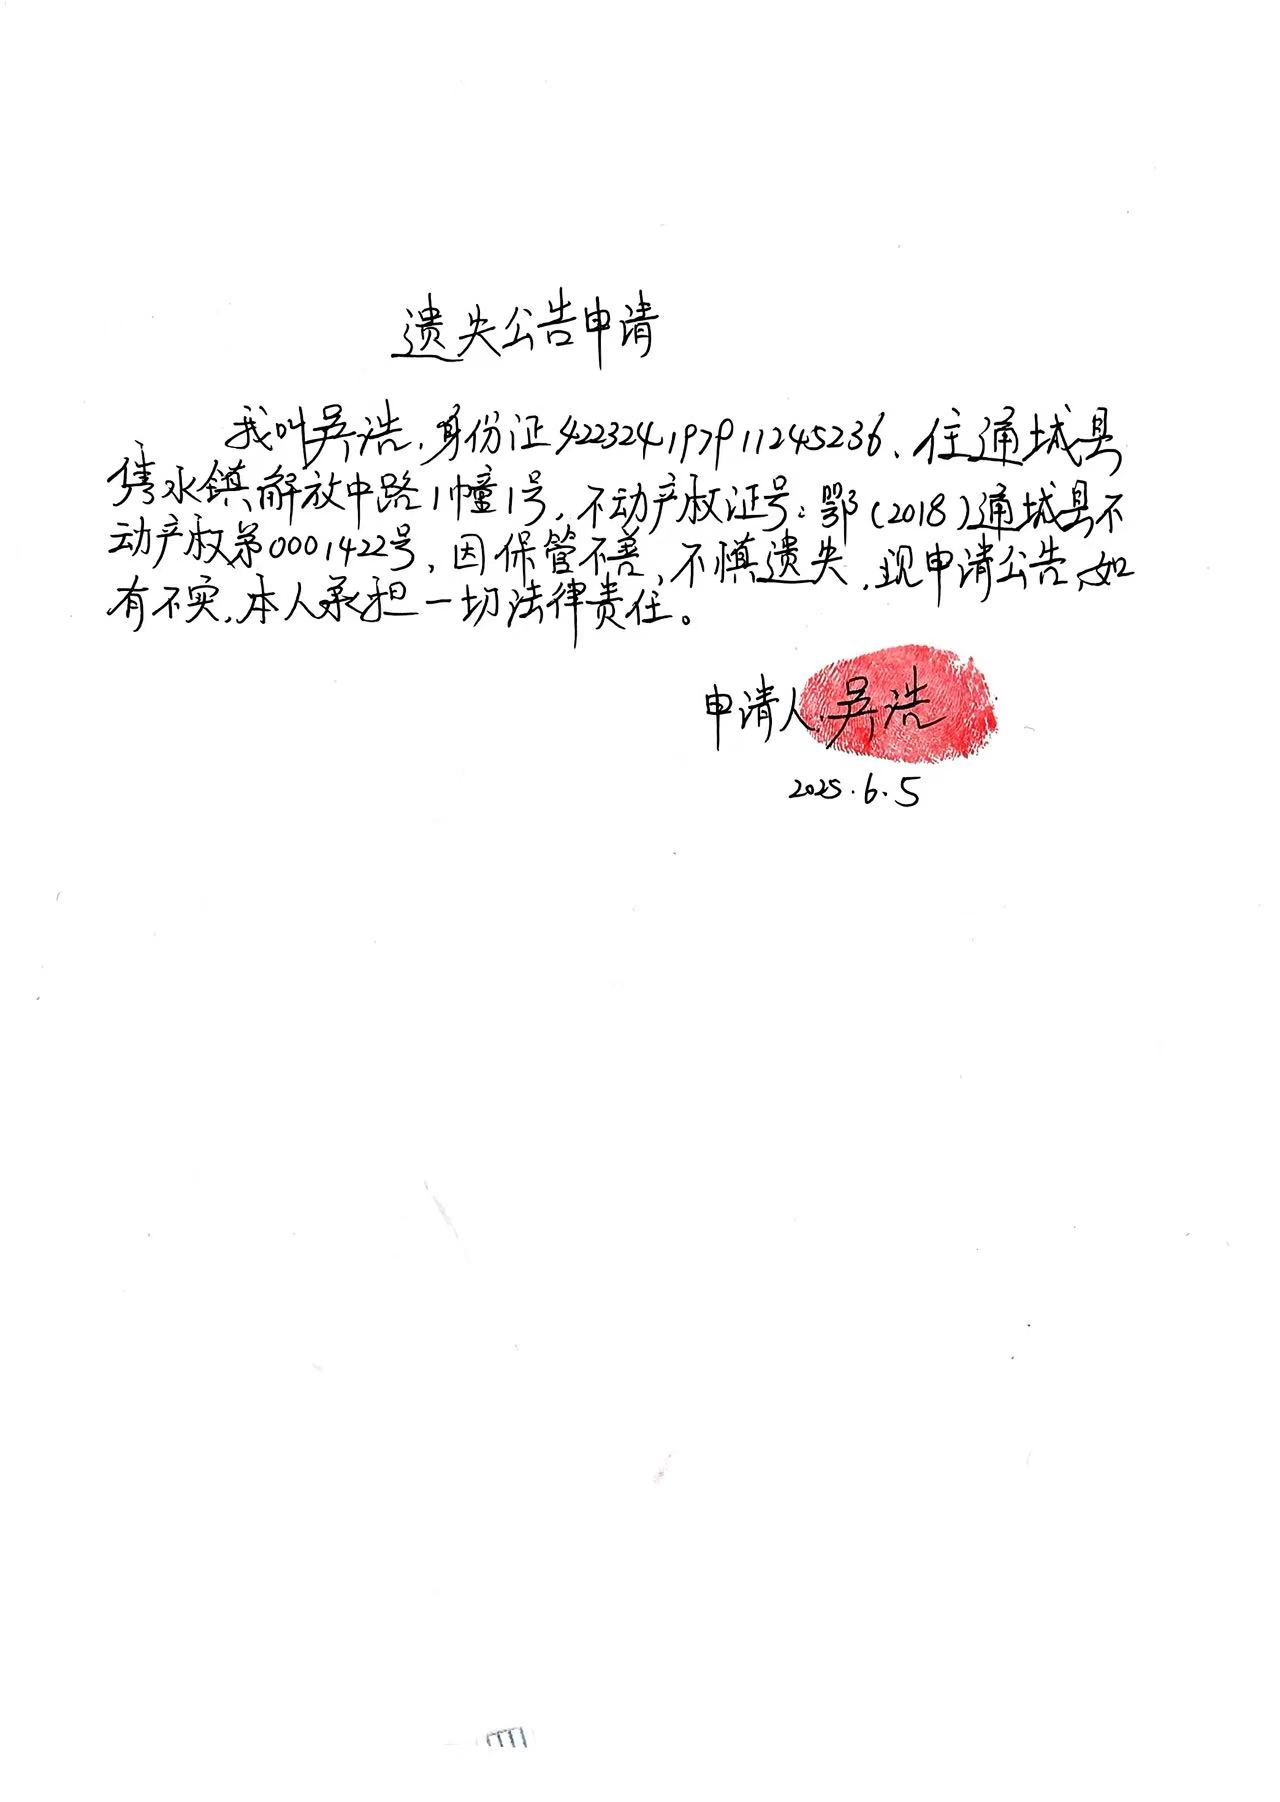 遗失公告申请
我叫吴浩,身份证422324197911245236、住通城县
隽水镇解放中路1幢1号,不动产权证号:鄂(2018)通城县不
动产权第0001422号,因保管不善,不慎遗失,现申请公告,如
有不实,本人承担一切法律责任。
申请人:吴浩
2025.6.5